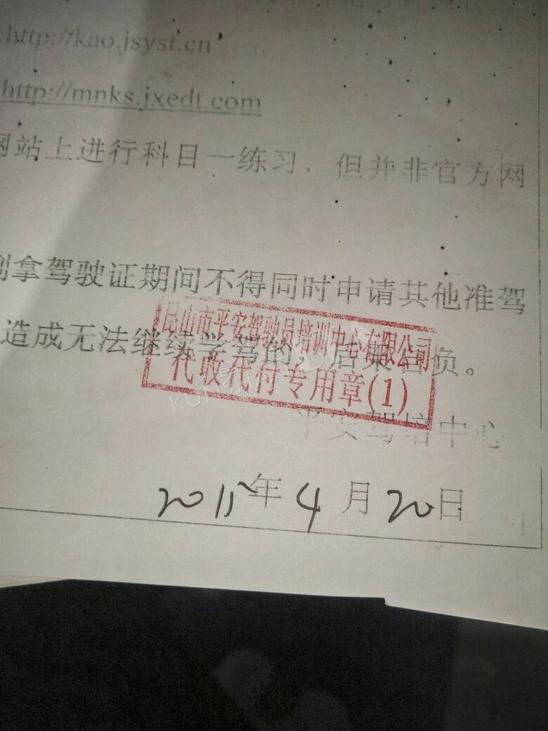 :http://kao.jsyst.cn
http://mnks.jxedt.com
网站上进行科目一练习,但并非官方网
到拿驾驶证期间不得同时申请其他准驾
造成无法继续学驾的,后果自负。
昆山市平安驾驶员培训中心有限公司
代收代付专用章(1)
平安驾培中心
2015年4月20日